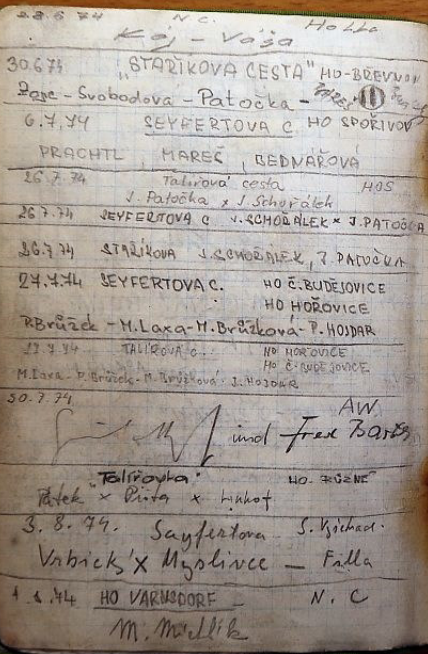 28.6.74 N.C. Holla
Koj - Váša
30.6.74 "STAŘÍKOVA CESTA" HO-BŘEVNOV
Zajc - Svobodova - Patočka -
6.7.74 SEYFERTOVA C HO SPOŘILOV
PRACHTL, MAREŠ, BEDNÁŘOVÁ
26.7.74 Talířová cesta HOS
J. Patočka x J. Schořálek
26.7.74 SEYFERTOVA C J. SCHOŘÁLEK x J. PATOČKA
26.7.74 STAŘÍKOVA J. SCHOŘÁLEK, J. PATOČKA
27.7.74 SEYFERTOVA C. HO Č. BUDĚJOVICE
HO HOŘOVICE
P. Brůžek - M. Laxa - M. Brůžková - P. HOJDAR
27.7.74 TALÍŘOVÁ C. HO HOŘOVICE
HO Č. BUDĚJOVICE
M. Laxa - P. Brůžek - M. Brůžková - J. HOJDAR
30.7.74 AW
und Fred
"Talířovka" HO "RŮZNÉ"
Pátek x Pinta x
3.8.74. Sayfertova
Vrbický x Myslivec - Filla
4.8.74 HO VARNSDORF N.C
M. Michlík